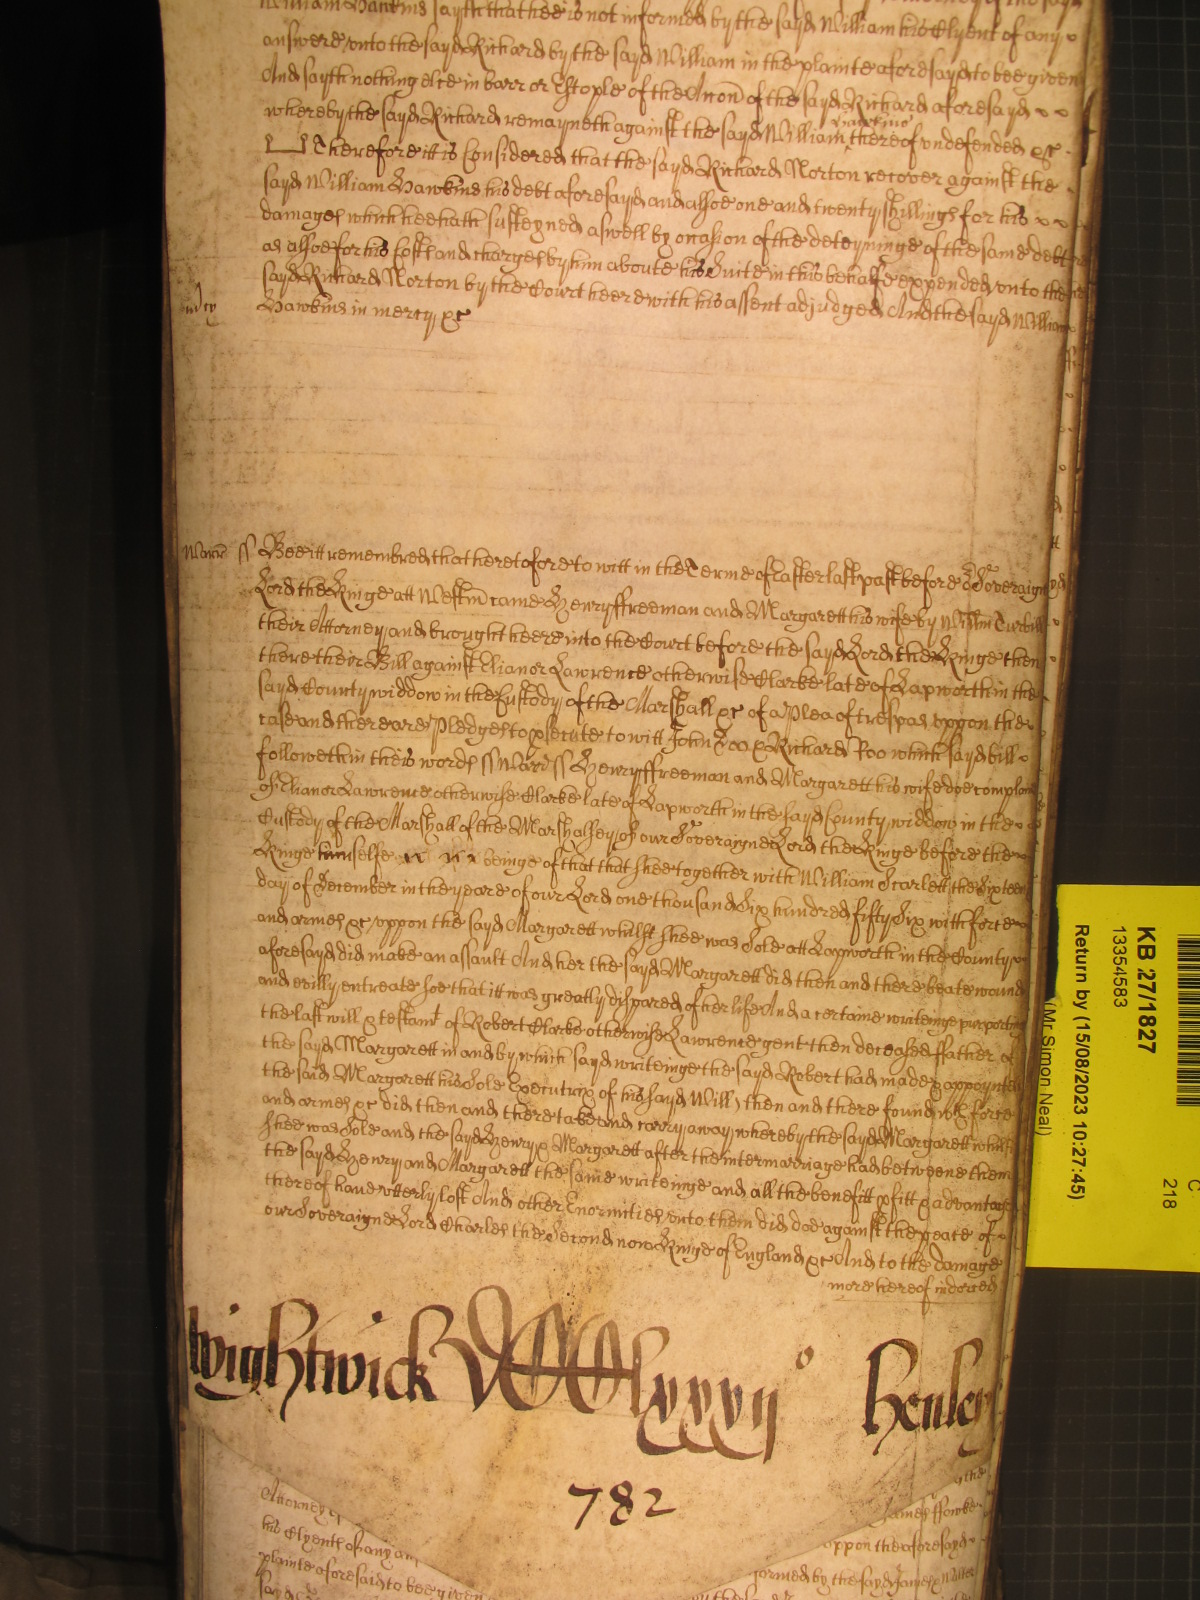 William Hawkins sayth that hee is not informed by the sayd William his Clyent of any
answere vnto the sayd Richard by the sayd William in the plainte aforesayd to bee given
And sayth nothing else in barr or Estople of the Accon of the sayd Richard aforesayd
whereby the sayd Richard remayneth against the sayd William Hawkins thereof vndefended &c
Therefore itt is Considered that the sayd Richard Norton recover against the
sayd William Hawkins his debt aforesayd and alsoe one and twenty shillings for his
damages which hee hath susteyned aswell by occasion of the deteyninge of the same debt
as alsoe for his Costs and charges by him aboute his Suite in this behalfe expended vnto the
sayd Richard Norton by the Court heere with his assent adjudged And the sayd William
Hawkins in mercy &c
Warr ss Bee itt remembred that heretofore to witt in the Terme of Easter last past before our Soveraigne
Lord the Kinge att Westm came Henry ffreeman and Margarett his wife by Willm
their Attorney and brought heere into the Court before the sayd Lord the Kinge then
there their Bill against Elianor Lawrence otherwise Clarke late of Lapworth in the
sayd County widdow in the Custody of the Marshall &c of a Plea of trespas vppon the
case and there are Pledges to psecute to witt John Doo & Richard Roo which sayd bill
followeth in theis words ss Warr ss Henry ffreeman and Margarett his wife doe complain
of Elianor Lawrence otherwise Clarke late of Lapworth in the sayd County widdow in the
Custody of the Marshall of the Marshalsey of our Soveraigne Lord the Kinge before the
Kinge himselfe beinge of that that shee together with William Scarlett the Sixteenth
day of December in the yeare of our Lord one thousand Six hundred fifty Six with force
and armes &c vppon the sayd Margarett whilst shee was Sole att Lapworth in the County
aforesayd did make an assault And her the sayd Margarett did then and there beate wound
and evilly entreate soe that itt was greatly dispared of her life And a certaine writeinge purporting
the last will & testamt of Robert Clarke otherwise Lawrence gent then deceased ffather of
the sayd Margarett in and by which sayd writeinge the sayd Robert had made & appoynted
the said Margarett his Sole Executrix of his sayd Will then and there found wth force
and armes &c did then and there take and carry away whereby the sayd Margarett whilst
shee was Sole and the sayd Henry & Margarett after the intermarriage had betweene them
the sayd Henry and Margarett the same writeinge and all the benefitt pfitt & advantage
thereof have vtterly lost And other Enormities vnto them did doe against the peace of
our Soveraigne Lord Charles the Second now Kinge of England &c And to the damage
more hereof indorced
Wightwick DCClxxxij o Henley
782
Attorney
his Clyent of any
plainte aforesaid to bee given
sayd
James ffowke
vppon the aforesayd
formed by the sayd James
KB 27/1827
13354583
Return by (15/08/2023 10:27:45)
(Mr Simon Neal)
C
218